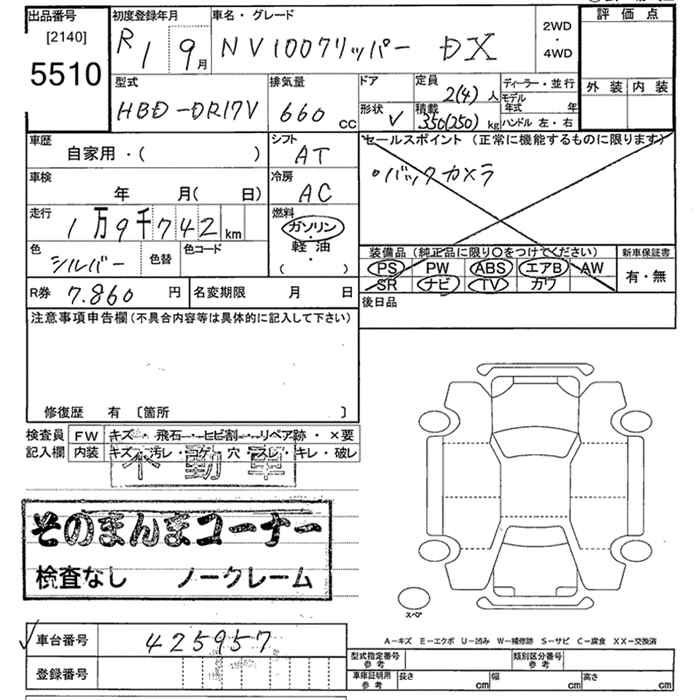 出品番号 初度登録年月 車名・グレード 2WD・4WD 評価点
[2140]
5510
R 1 9月 NV100クリッパー DX
外装 内装
型式 排気量 ドア 定員 2(4)人 ディーラー・並行
HBD-DR17V 660cc 形状 V 積載 350(250)kg モデル年式 年
ハンドル 左・右
車歴 シフト セールスポイント (正常に機能するものに限ります)
自家用・( ) AT ・バックカメラ
車検 冷房
年 月(日) AC
走行 燃料
1万9千742km ガソリン
色 色替 色コード 軽油
シルバー ( )
装備品(純正品に限り○をつけてください) 新車保証書
PS PW ABS エアB AW 有・無
SR ナビ TV カワ
R券 7.860円 名変期限 月 日 後日品
注意事項申告欄(不具合内容等は具体的に記入して下さい)
修復歴 有 [箇所 ]
検査員 FW キズ・飛石・ヒビ割・リペア跡・×要
記入欄 内装 キズ・汚レ・コゲ・穴・スレ・キレ・破レ
不動車
そのまんまコーナー
検査なし ノークレーム
スペア
車台番号 425957
A－キズ E－エクボ U－凹み W－補修跡 S－サビ C－腐食 XX－交換済
登録番号
型式指定番号 参考 類別区分番号 参考
車庫証明用 参考 長さ cm 幅 cm 高さ cm